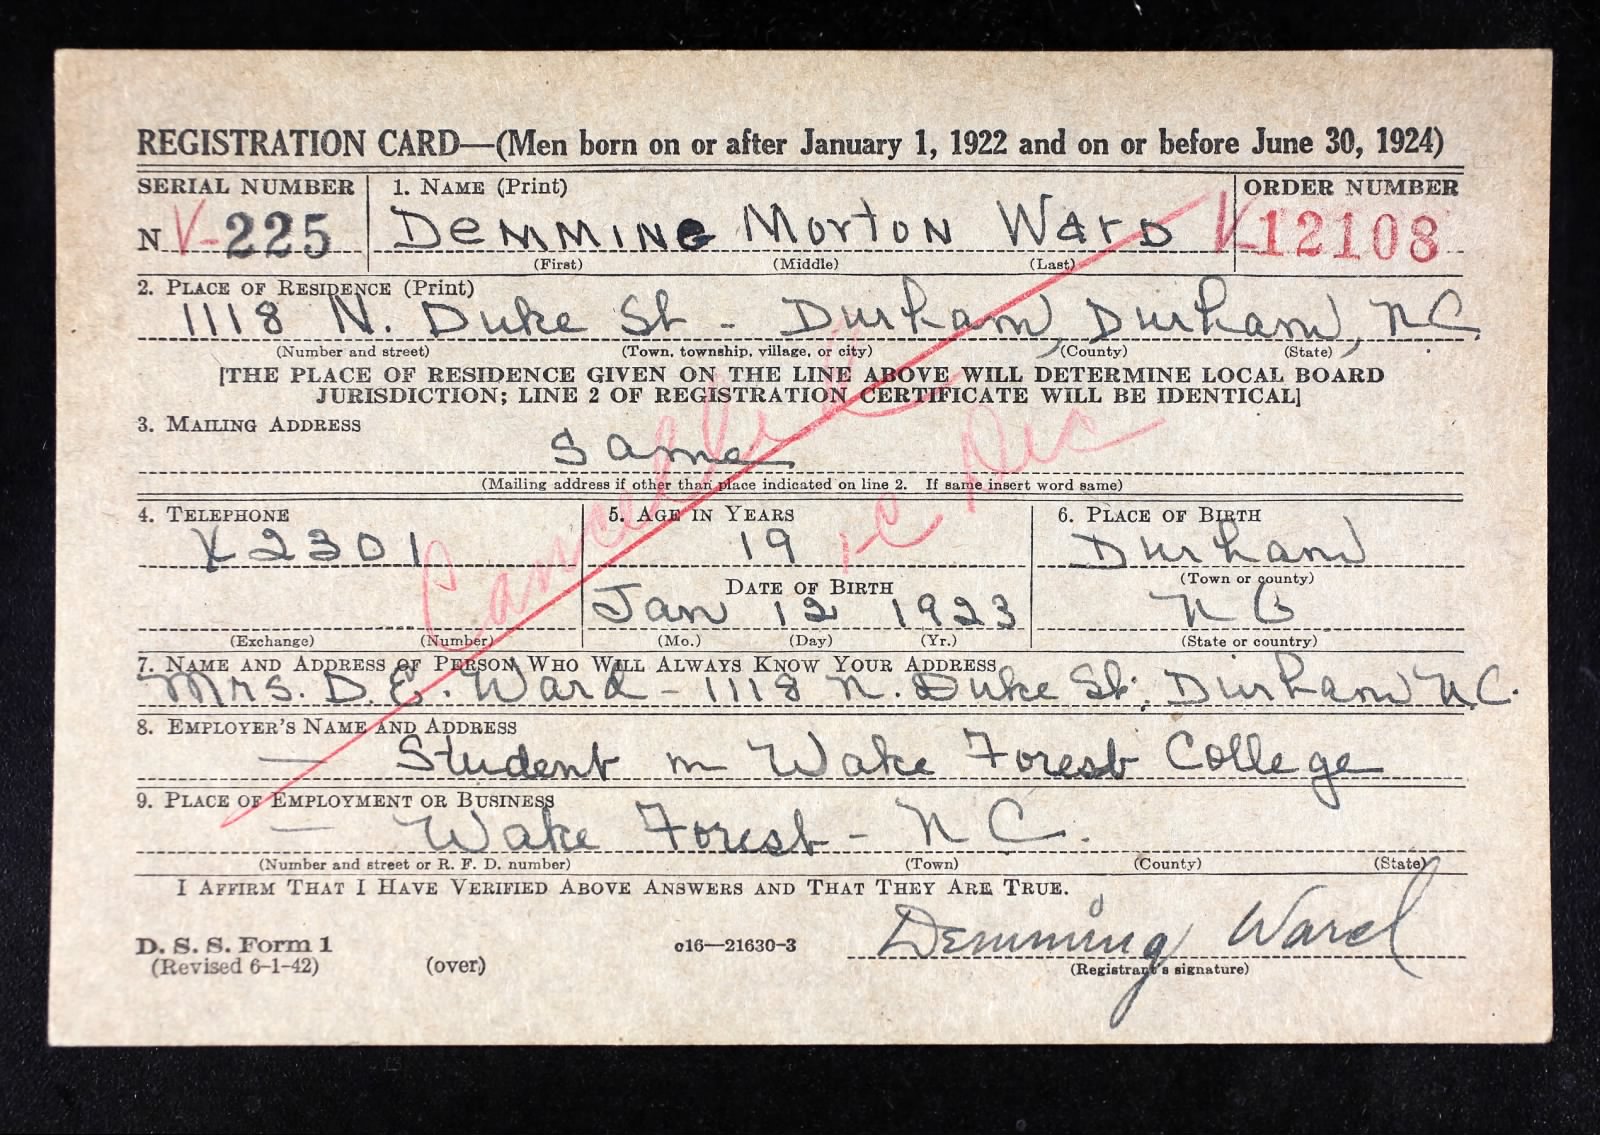 REGISTRATION CARD—(Men born on or after January 1, 1922 and on or before June 30, 1924)
SERIAL NUMBER 1. NAME (Print) ORDER NUMBER
N V-225 Demming Morton Ward V-12108
(First) (Middle) (Last)
2. PLACE OF RESIDENCE (Print)
1118 N. Duke St - Durham, Durham, N C.
(Number and street) (Town, township, village, or city) (County) (State)
[THE PLACE OF RESIDENCE GIVEN ON THE LINE ABOVE WILL DETERMINE LOCAL BOARD
JURISDICTION; LINE 2 OF REGISTRATION CERTIFICATE WILL BE IDENTICAL]
3. MAILING ADDRESS
Same
(Mailing address if other than place indicated on line 2. If same insert word same)
Cancelled
4. TELEPHONE 5. AGE IN YEARS 6. PLACE OF BIRTH
X2301 19 1-C Durham
DATE OF BIRTH (Town or county)
Jan 12 1923 N C
(Exchange) (Number) (Mo.) (Day) (Yr.) (State or country)
7. NAME AND ADDRESS OF PERSON WHO WILL ALWAYS KNOW YOUR ADDRESS
Mrs. D. E. Ward - 1118 N. Duke St; Durham N.C.
8. EMPLOYER'S NAME AND ADDRESS
— Student in Wake Forest College
9. PLACE OF EMPLOYMENT OR BUSINESS
— Wake Forest - N C.
(Number and street or R. F. D. number) (Town) (County) (State)
I AFFIRM THAT I HAVE VERIFIED ABOVE ANSWERS AND THAT THEY ARE TRUE.
Demming Ward
D. S. S. Form 1 c16—21630-3
(Revised 6-1-42) (over) (Registrant's signature)